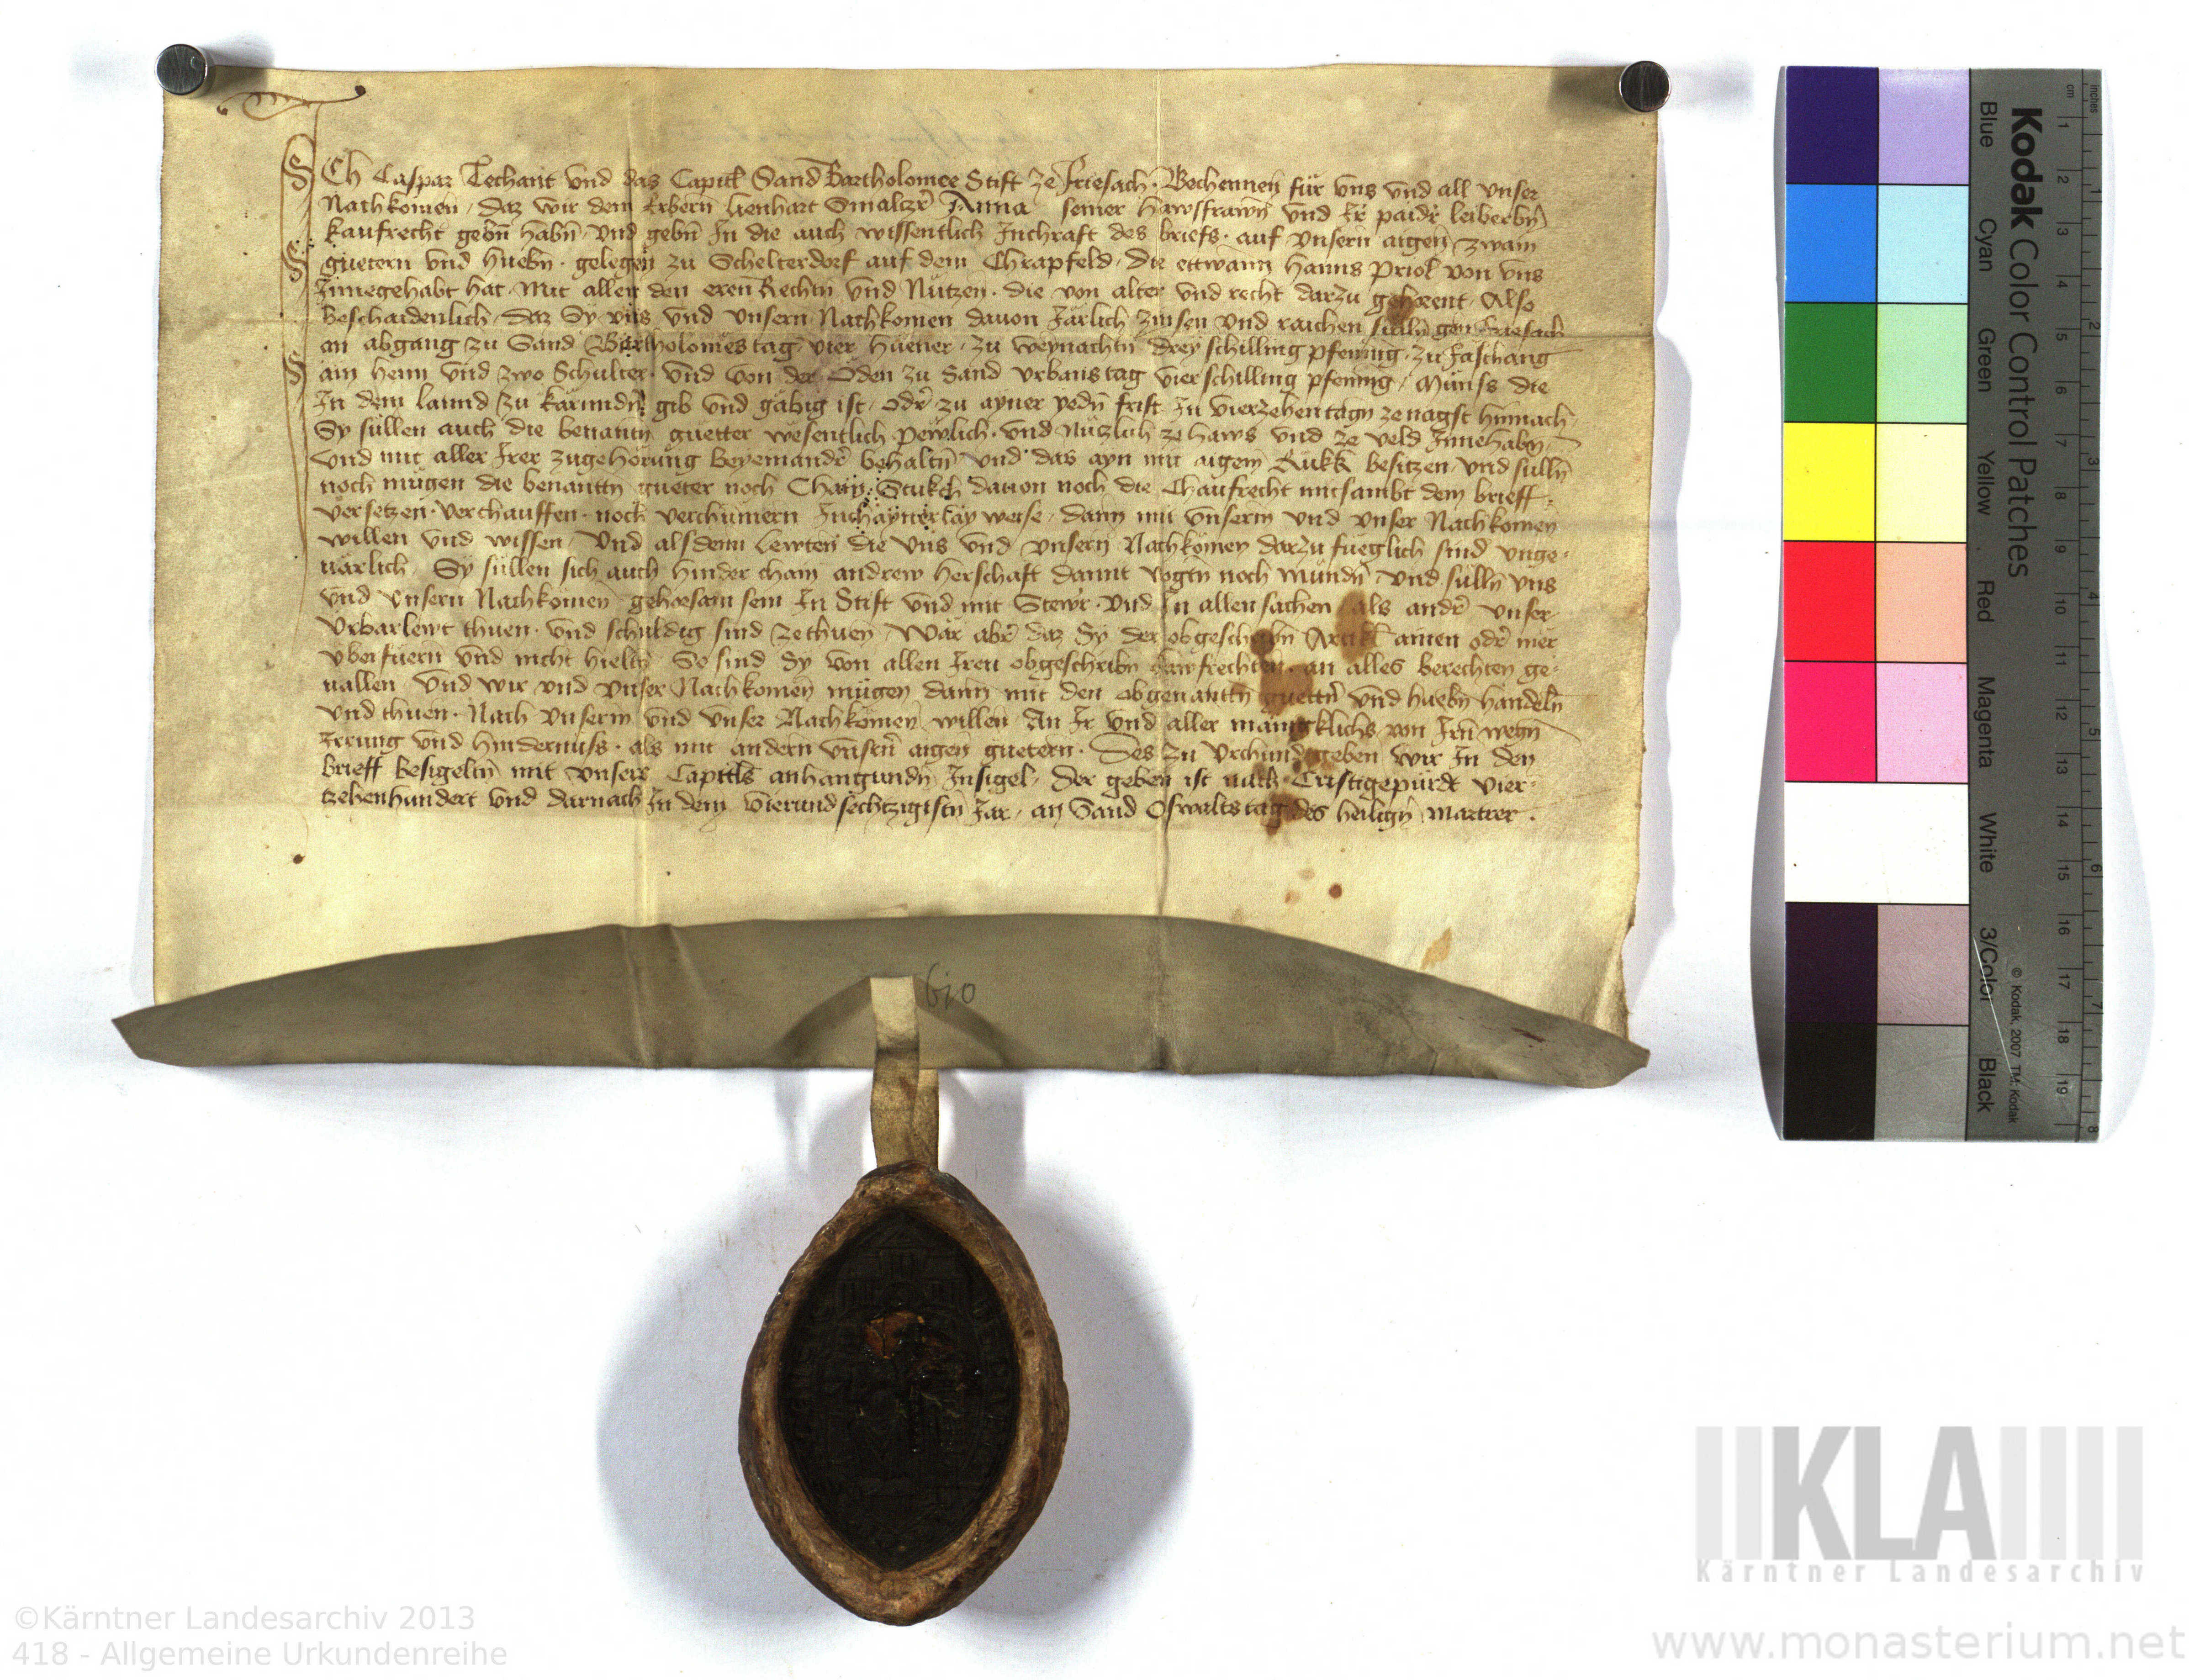 Ich Caspar Techant vnd das Capitl Sand Bartholomee Stift ze Friesach · Bechennen für vns vnd all vnser
Nachkomen / daz wir dem Erbern lienhart Smalczr̄ Anna seiner hawsfrawn̄ vnd Ir paidr̄ leiberbn̄
kaufrecht gebn̄ habn̄ vnd gebn̄ In die auch wissentlich Inchraft des briefs · auf vnsern aigen̄ zwain
guetern vnd huebn̄ · gelegen zu Schelterdorf auf dem Chrapfeld / die ettwann hanns priol von vns
Innegehabt hat · mit allen den eren Rechtn̄ vnd Nützen · die von alter vnd recht darzu gehorent / Also
beschaidenlich / daz Sy vns vnd vnsern Nachkomen dauon Järlich zinsen vnd raichen sulln̄ gen Friesach
an abgang zu Sand Bartholomes tag / vier huener / zu weynachtn̄ drey schilling pfening / zu faschang
ain henn vnd zwo Schulter · vnd von der Öden zu Sand vrbans tag vier schilling pfening / Münss die
In dem lannd zu kärnndn̄ gib vnd gäbig ist / odr̄ zu ayner yedn̄ frist In vierzehen tagn̄ ze nagst hinnach /
Sy süllen auch die benantn̄ guetter wesentlich pewlich · vnd nützlich ze haws vnd ze veld Innehabn̄ /
vnd mit aller Irer zugehörung beyeinandr̄ behaltn̄ vnd das ayn mit aigem Rukk besitzen / vnd sülln̄
noch mügen die benanttn̄ gueter noch Chain Stukch dauon noch die Chaufrecht mitsambt dem brieff ·
versetzen · verchauffen · noch verchümern Inchaynerlay weise / dann mit vnserm vnd vnser Nachkomen
willen vnd wissen / vnd alsdenn lewten die vns vnd vnsern Nachkömen darzu fueglich sind vnge-
uärlich / Sy süllen sich auch hinder chain andrew herschaft damit vogtn̄ noch mündn̄ / vnd sülln̄ vns
vnd vnsern Nachkömen gehorsam sein In Stift vnd mit Stewr̄ · vnd In allen sachen / als andr̄ vnser
vrbarlewt thuen · vnd schuldig sind ze thuen / Wär abr̄ daz Sy der obgeschribn̄ Artikl ainen odr̄ mer
vberfuern vnd nicht hieltn̄ So sind Sy von allen Iren obgeschribn̄ kawfrechten · an alles berechten ge-
uallen / vnd wir vnd vnser Nachkomen̄ mügen dann mit den obgenanttn̄ guettn̄ vnd huebn̄ handeln̄
vnd thuen · Nach vnserm vnd vnser Nachkömen willen An Ir vnd aller mänigklichs von Irn̄ wegn̄
Irrung vnd hindernuss · als mit andern vnsrn̄ aigen guetern · Des zu vrchund geben wir In den
brieff besigeltn̄ mit vnsers Capitls anhangundn̄ Insigel / der geben ist nach Cristigepürdt vier-
tzehenhundert vnd darnach In dem vierundsechtzigistn̄ Jar / an Sand Oswalts tag des heilign̄ martrer ·
610
Kodak Color Control Patches
Blue Cyan Green Yellow Red Magenta White 3/Color Black
© Kodak, 2007 TM: Kodak
cm 1 2 3 4 5 6 7 8 9 10 11 12 13 14 15 16 17 18 19
inches 1 2 3 4 5 6 7 8
KLA
Kärntner Landesarchiv
©Kärntner Landesarchiv 2013
418 - Allgemeine Urkundenreihe
www.monasterium.net